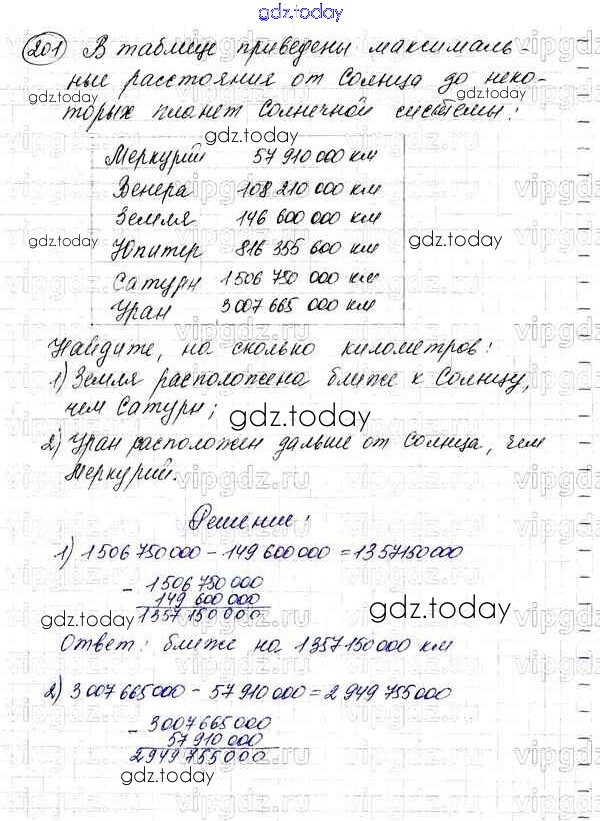 gdz.today
201 В таблице приведены максималь-
ные расстояния от Солнца до неко-
торых планет Солнечной системы:
Меркурий 57 910 000 км
Венера 108 210 000 км
Земля 146 600 000 км
Юпитер 816 355 600 км
Сатурн 1 506 750 000 км
Уран 3 007 665 000 км
Найдите, на сколько километров:
1) Земля расположена ближе к Солнцу,
чем Сатурн;
2) Уран расположен дальше от Солнца, чем
Меркурий.
Решение:
1) 1 506 750 000 - 149 600 000 = 1357150000
- 1 506 750 000
149 600 000
1357 150 000
Ответ: ближе на 1357150000 км
2) 3 007 665 000 - 57 910 000 = 2 949 755 000
- 3007 665 000
57 910 000
2949 755 000